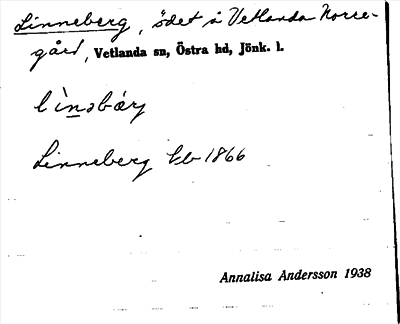 Linneberg, ödet å Vetlanda Norre-
gård, Vetlanda sn, Östra hd, Jönk. l.
lìnəbæ̀rj
Linneberg Eb 1866
Annalisa Andersson 1938